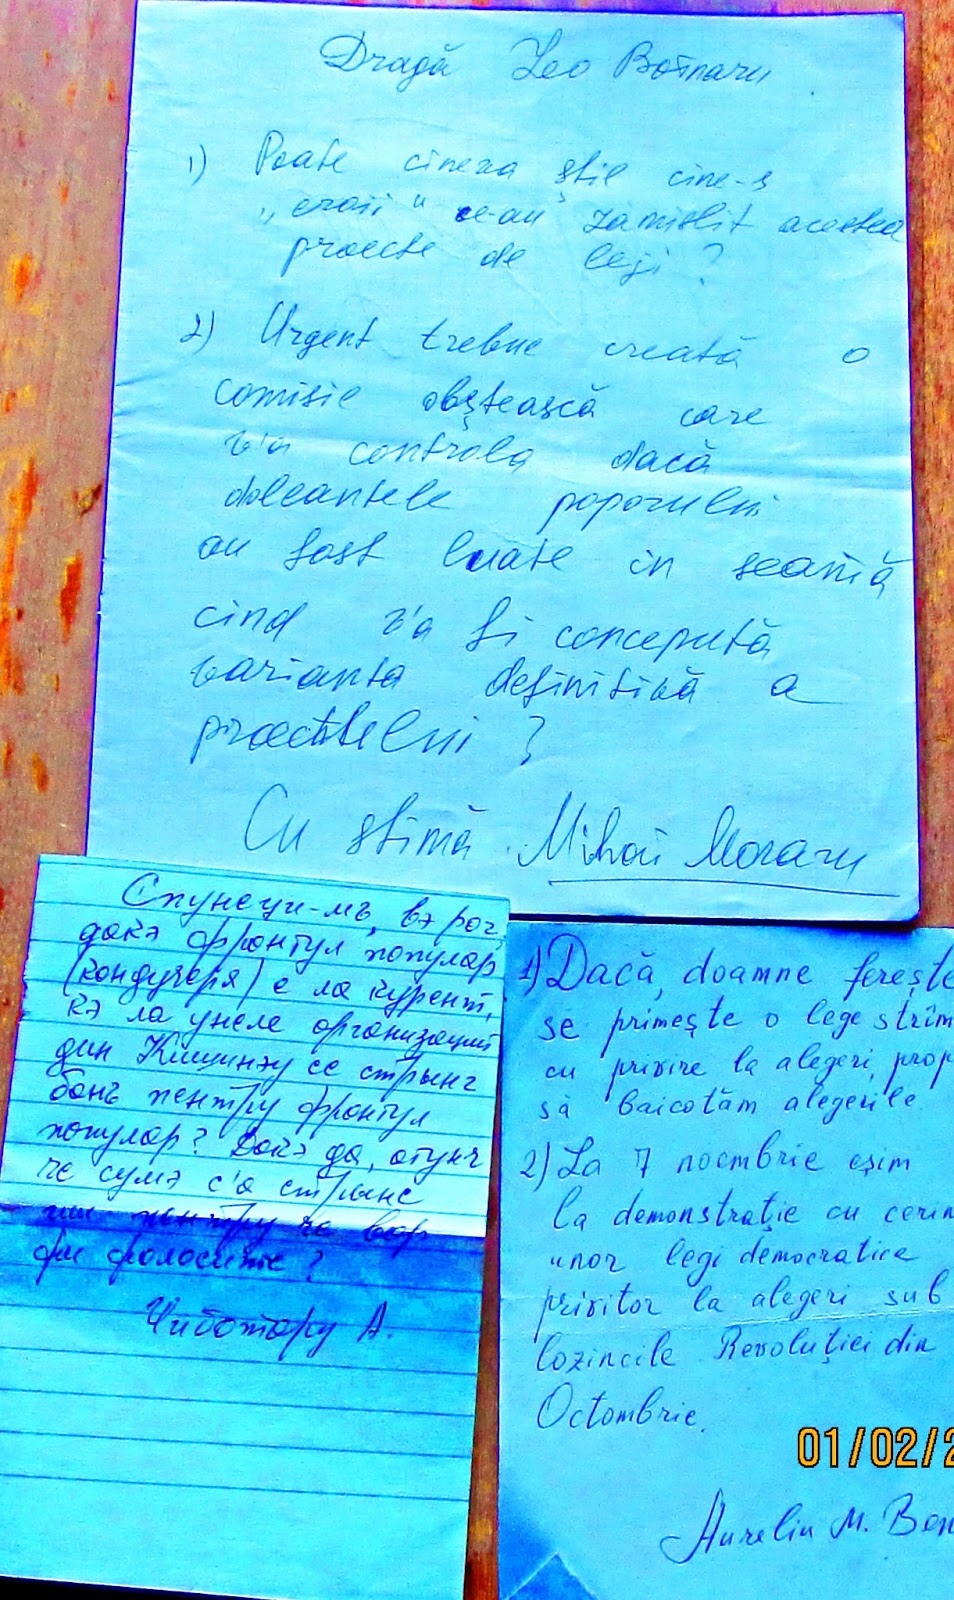 Dragă Leo Botnaru
1) Poate cineva știe cine-s
„eroii" ce-au zămislit acestea
proecte de legi ?
2) Urgent trebue creată o
comisie obștească care
v'a controla dacă
doleantele poporului
au fost luate in seamă
cind v'a fi concepută
varianta definitivă a
proectelui ?
Cu stimă. Mihai Moraru
Спунеци-мь, вэ рог,
дакэ фронтул популар
(кондучеря) е ла курент,
кэ ла унеле организаций
дин Кишинэу се стрынг
бань пентру фронтул
популар? Дакэ да, атунч
че сумэ с'а стрынс
ши пентру че вор
фи фолосите ?
Чиботару А.
1) Dacă, doamne ferește
se primește o lege strîm
cu privire la alegeri, prop
să baicotăm alegerile
2) La 7 noembrie eșim
la demonstrație cu cerin
unor legi democratice
privitor la alegeri sub
lozincile Revoluției din
Octombrie.
01/02/2
Aureliu M. Bon